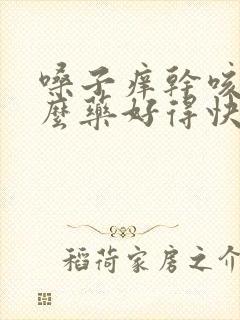 嗓子痒幹咳
麼藥好得快
稻荷家房之介